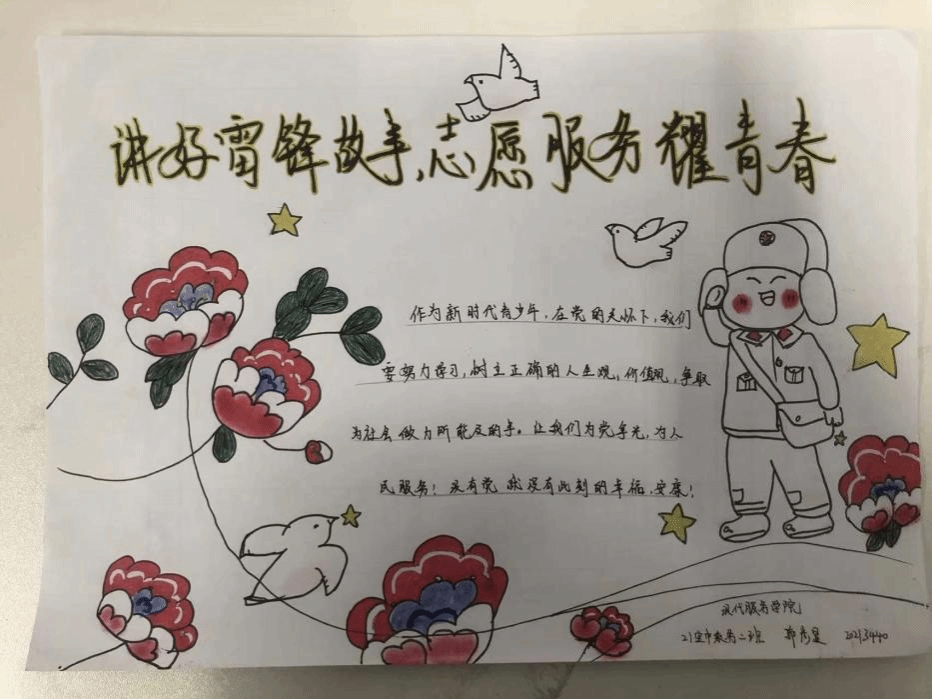 讲好雷锋故事,志愿服务耀青春
作为新时代青少年,在党的关怀下,我们
要努力学习,树立正确的人生观,价值观,争取
为社会做力所能及的事。让我们为党争光,为人
民服务!没有党就没有此刻的幸福,安康!
现代服务学院
21空中乘务二班